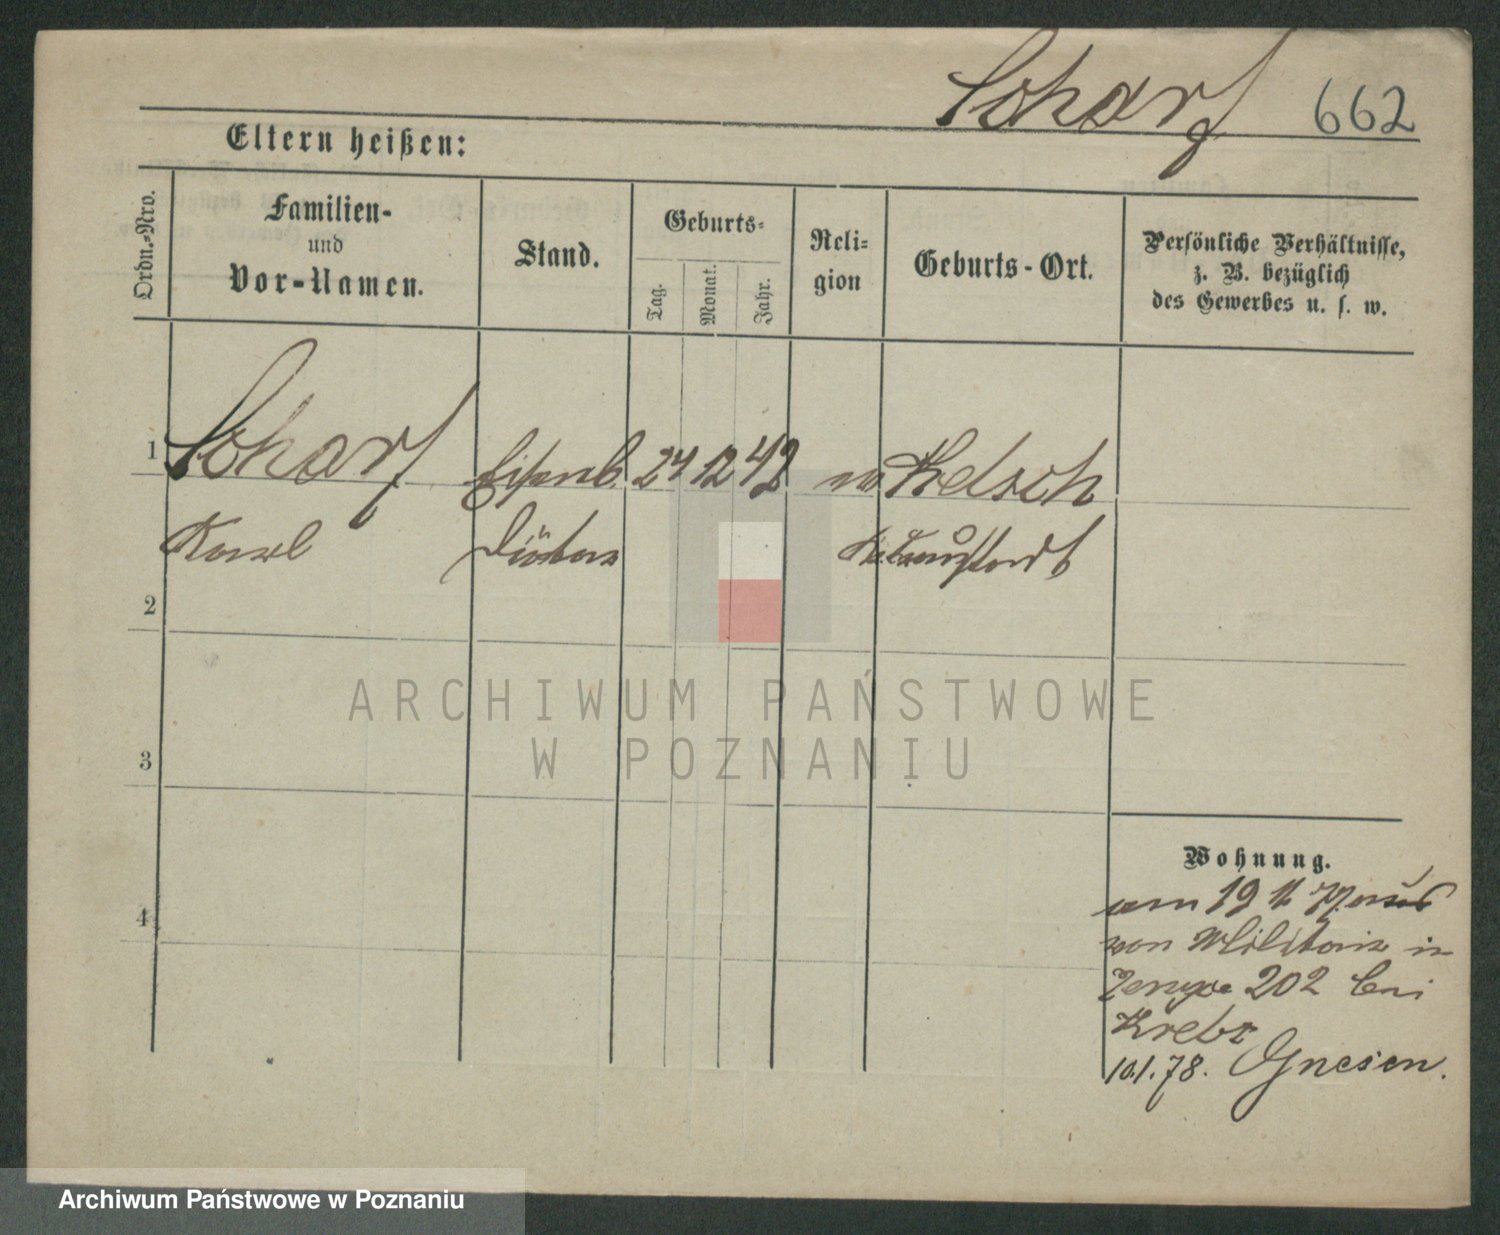 Scharf 662
Eltern heißen:
Ordn.-Nro.
Familien-
und
Vor-Namen.
Stand.
Geburts-
Tag.
Monat.
Jahr.
Reli-
gion
Geburts-Ort.
Persönliche Verhältnisse,
z. B. bezüglich
des Gewerbes u. s. w.
1 Scharf Eisenb. 24 12 42 ev
Karl Diätar
2
3
4
Wohnung.
am 19 11 77
vom Militair in
202 bei
Krebs
10.1.78. Gnesen.
ARCHIWUM PAŃSTWOWE
W POZNANIU
Archiwum Państwowe w Poznaniu